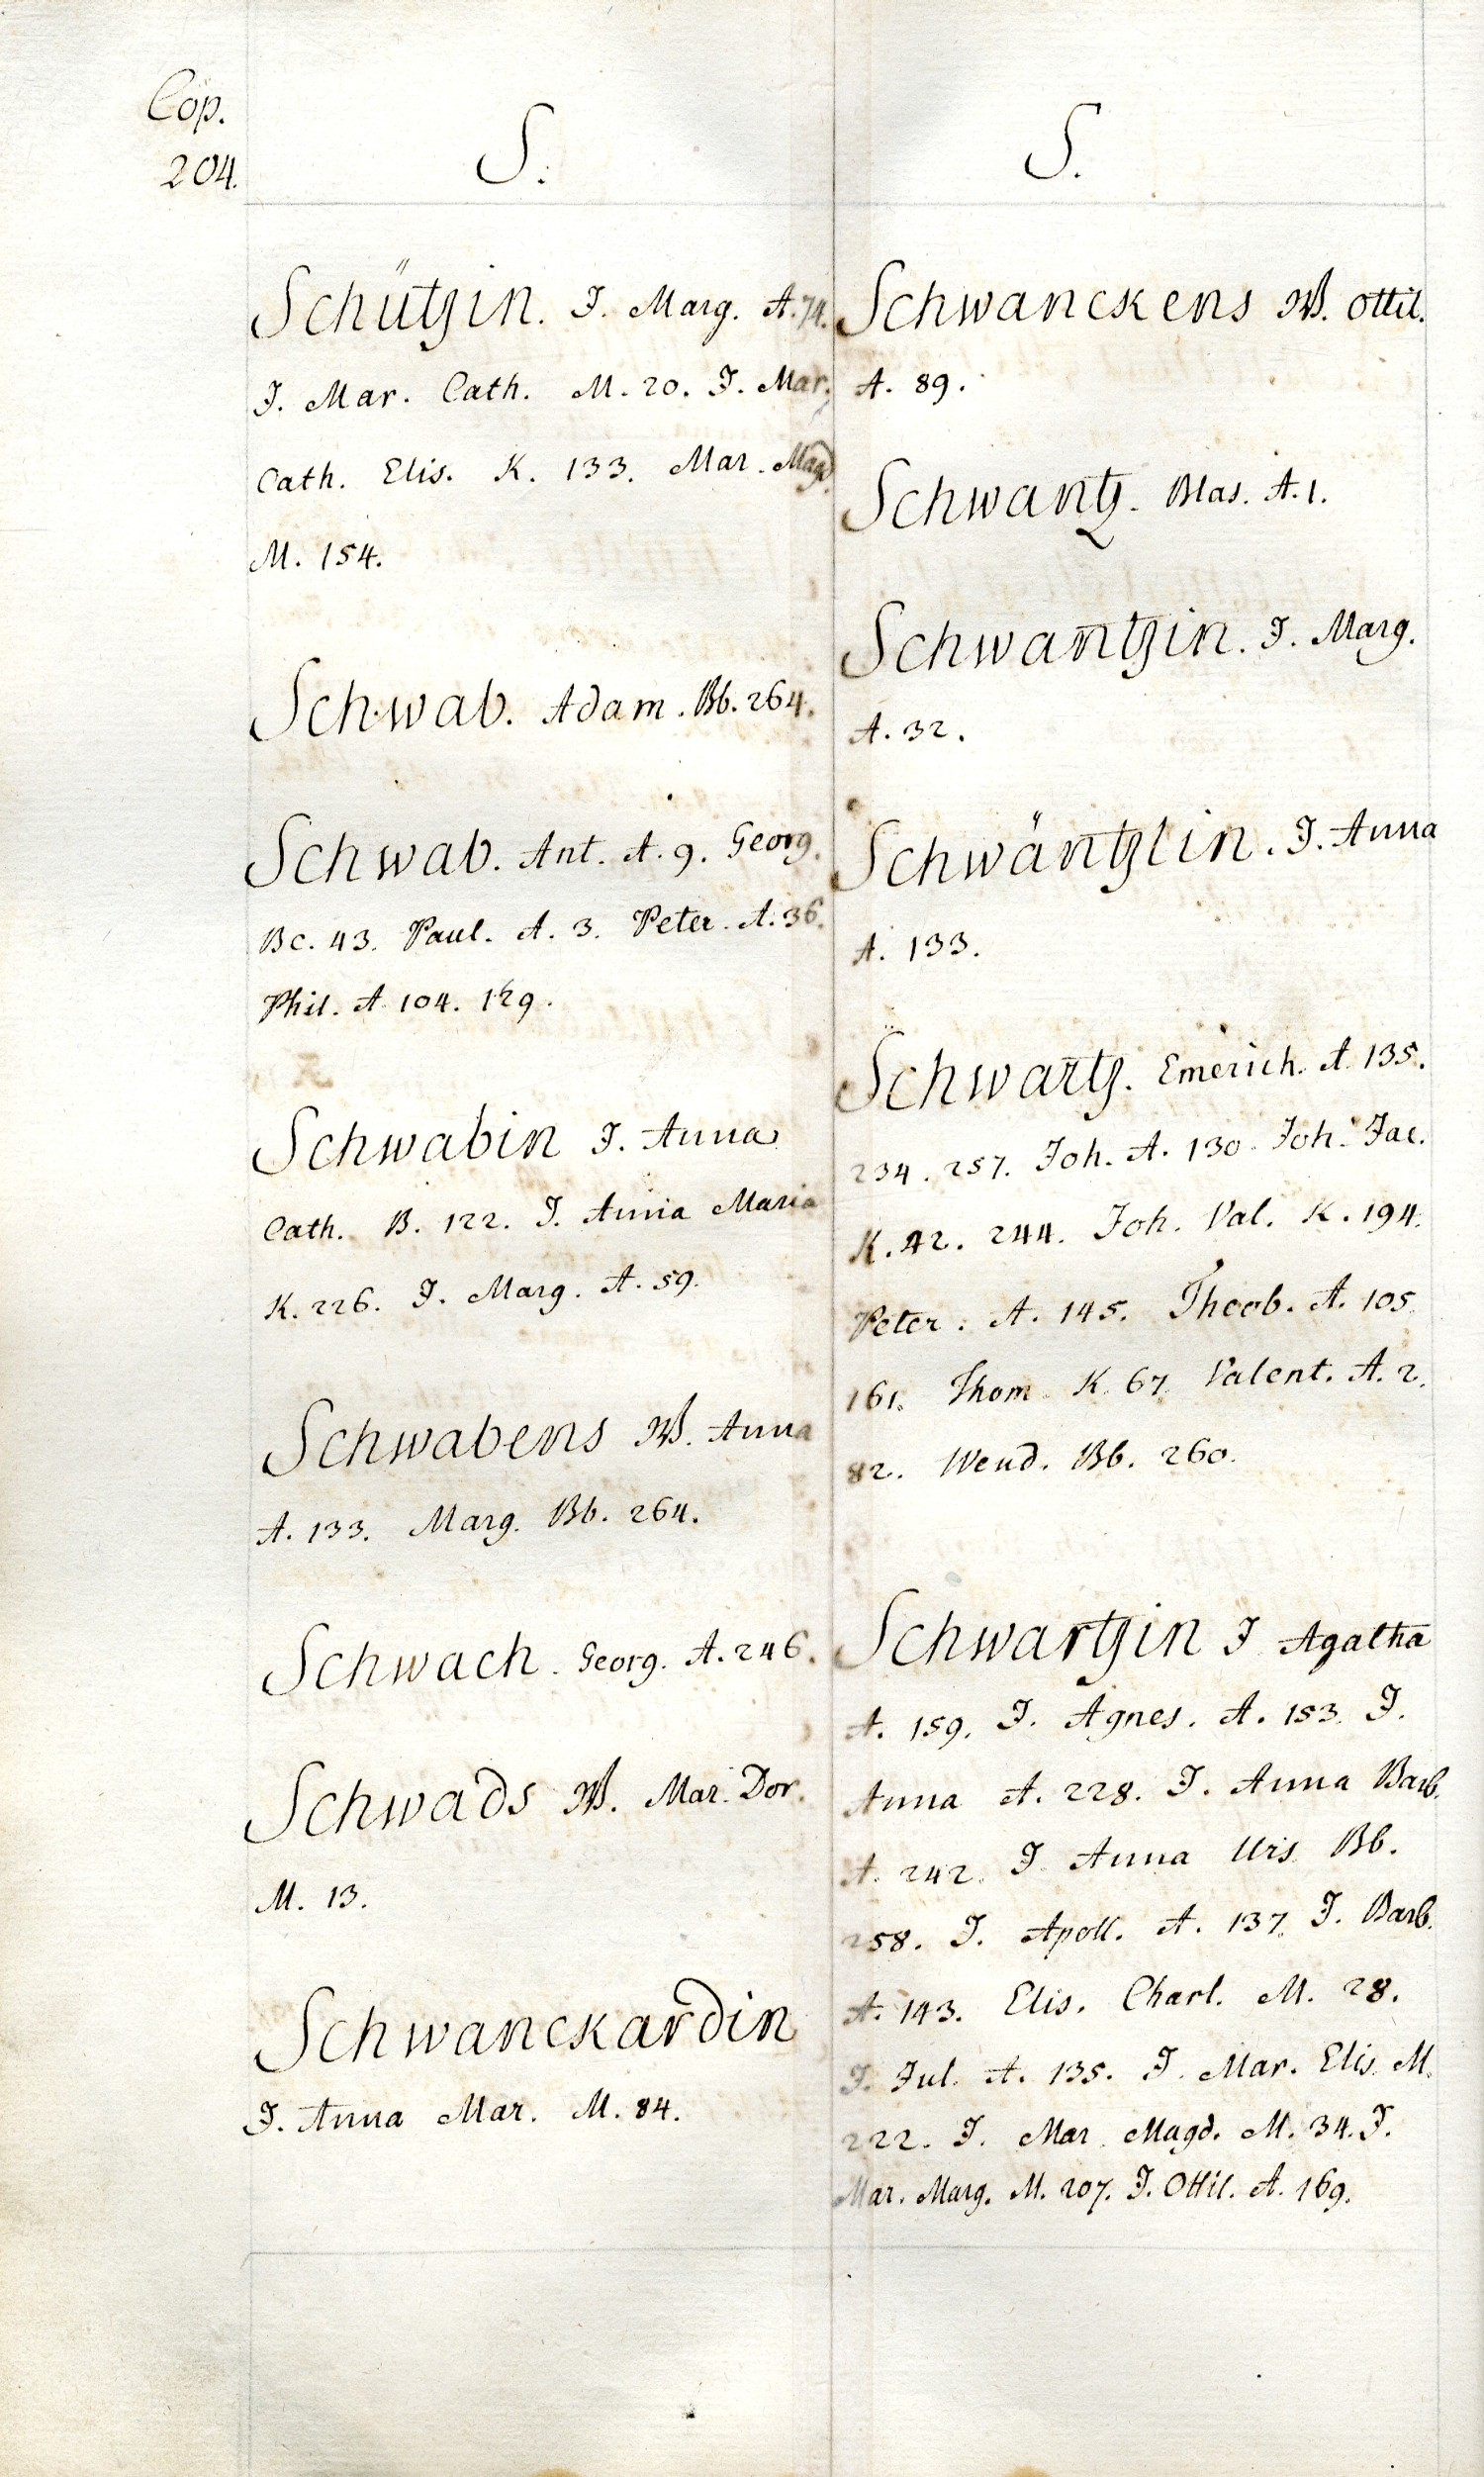 Cop.
204.
S.
Schützin. J. Marg. A. 74.
J. Mar. Cath. M. 20. J. Mar.
Cath. Elis. K. 133. Mar. Magd.
M. 154.
Schwab. Adam. Bb. 264.
Schwab. Ant. A. 9. Georg.
Bc. 43. Paul. A. 3. Peter. A. 36.
Phil. A. 104. 129.
Schwabin J. Anna
Cath. B. 122. J. Anna Maria
K. 226. J. Marg. A. 59.
Schwabens W. Anna
A. 133. Marg. Bb. 264.
Schwach. Georg. A. 246.
Schwads W. Mar. Dor.
M. 13.
Schwanckardin
J. Anna Mar. M. 84.
S.
Schwanckens W. Ottil.
A. 89.
Schwantz. Blas. A. 1.
Schwantzin. J. Marg.
A. 32.
Schwäntzlin. J. Anna
A. 133.
Schwartz. Emerich. A. 135.
234. 257. Joh. A. 130. Joh. Jac.
K. 42. 244. Joh. Val. K. 194.
Peter. A. 145. Theob. A. 105.
161. Thom. K. 67. Valent. A. 2.
82. Wend. Bb. 260.
Schwartzin J Agatha
A. 159. J. Agnes. A. 153. J.
Anna A. 228. J. Anna Barb.
A. 242. J. Anna Urs. Bb.
258. J. Apoll. A. 137. J. Barb.
A. 143. Elis. Charl. M. 28.
J. Jul. A. 135. J. Mar. Elis. M.
222. J. Mar. Magd. M. 34. J.
Mar. Marg. M. 207. J. Ottil. A. 169.